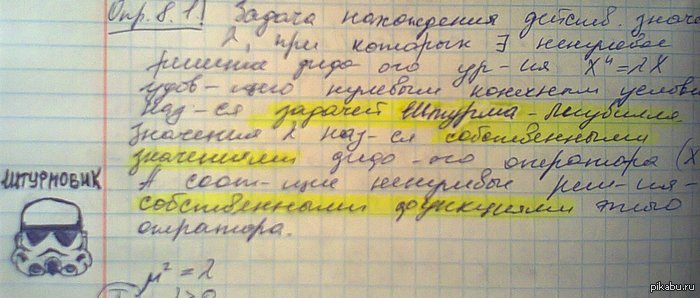 Опр. 8.1. Задача нахождения действ. знач
λ, при которых ∃ ненулевое
решение диф-ого ур-ия X" = λX
удов-щего нулевым конечным услови
Наз-ся задачей Штурма-Лиувилля
Значения λ наз-ся собственными
значениями диф-ого оператора (X
А соот-щие ненулевые реш-ия-
собственными функциями этого
оператора.
ШТУРМОВИК
μ² = λ
pikabu.ru